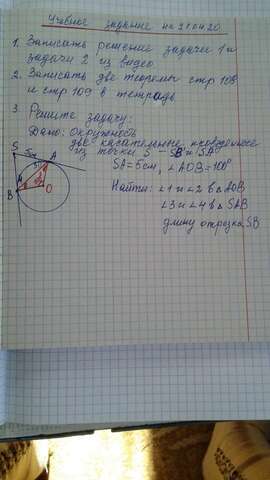 Учебное задание на 21.04.20
1. Записать решение задачи 1 и
задачи 2 из видео.
2. Записать две теоремы стр 108
и стр 109 в тетрадь
3. Решите задачу:
Дано: окружность
две касательные проведенные
из точки S - SB и SA
SA = 5 см, ∠AOB = 100°
Найти: ∠1 и ∠2 в ΔAOB
∠3 и ∠4 в ΔSAB
длину отрезка SB
S
5см
A
B
O